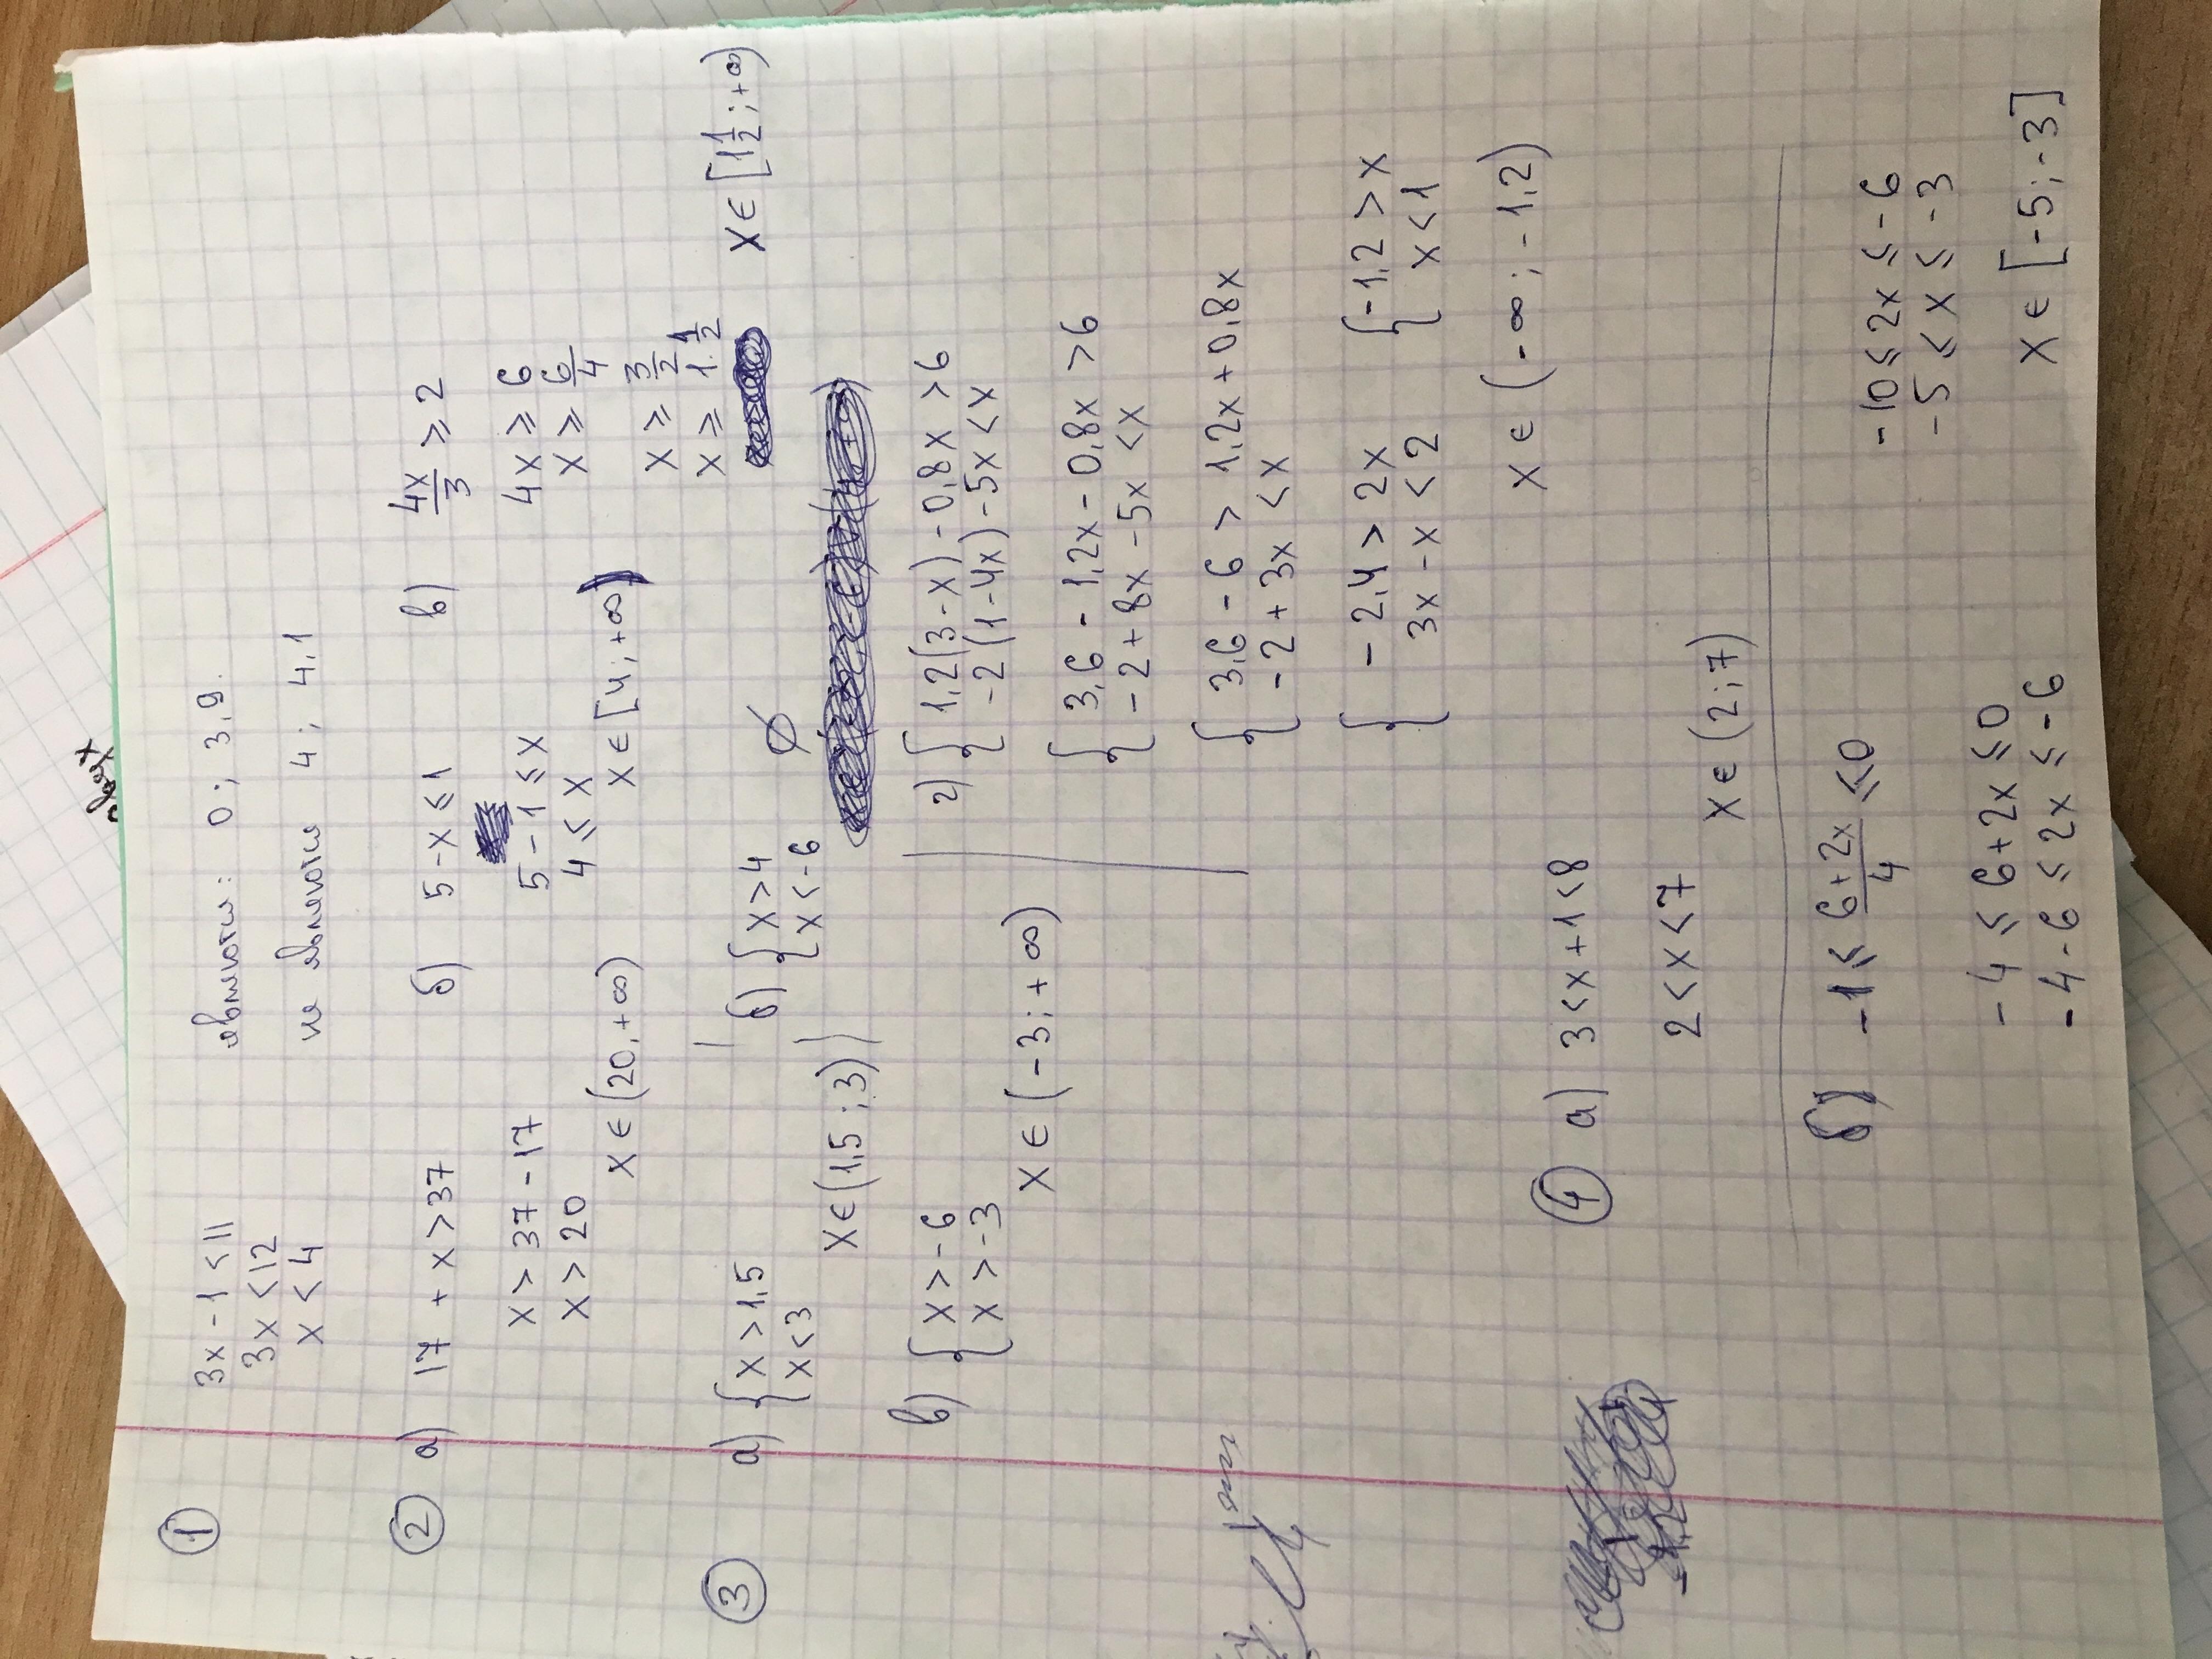 ①
3x - 1 < 11
3x < 12
x < 4
являются: 0 ; 3,9.
не являются 4 ; 4,1
② а) 17 + x > 37
x > 37 - 17
x > 20
x ∈ (20, +∞)
б) 5 - x ≤ 1
5 - 1 ≤ x
4 ≤ x
x ∈ [4 ; +∞)
в) 4x/3 ≥ 2
4x ≥ 6
x ≥ 6/4
x ≥ 3/2
x ≥ 1 1/2
x ∈ [1 1/2 ; +∞)
③ а) { x > 1,5
x < 3
x ∈ (1,5 ; 3)
б) { x > 4
x < -6
∅
в) { x > -6
x > -3
x ∈ (-3 ; +∞)
г) { 1,2(3 - x) - 0,8x > 6
-2(1 - 4x) - 5x < x
{ 3,6 - 1,2x - 0,8x > 6
-2 + 8x - 5x < x
{ 3,6 - 6 > 1,2x + 0,8x
-2 + 3x < x
{ -2,4 > 2x
3x - x < 2
{ -1,2 > x
x < 1
x ∈ (-∞ ; -1,2)
④ а) 3 < x + 1 < 8
2 < x < 7
x ∈ (2 ; 7)
б) -1 ≤ (6 + 2x)/4 ≤ 0
-4 ≤ 6 + 2x ≤ 0
-4 - 6 ≤ 2x ≤ -6
-10 ≤ 2x ≤ -6
-5 ≤ x ≤ -3
x ∈ [-5 ; -3]